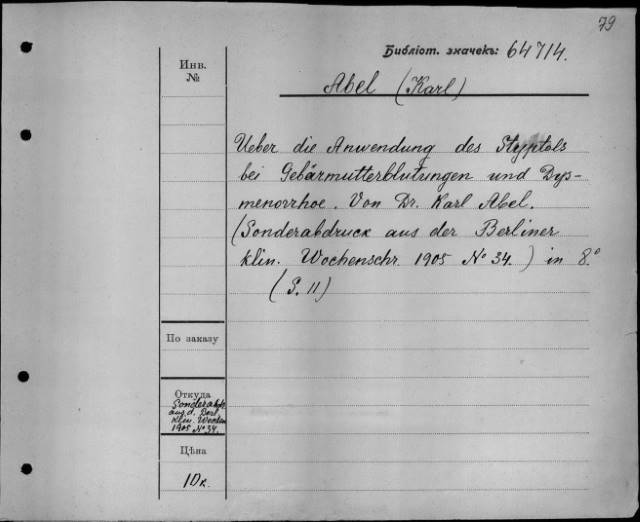 79
Библіот. значекъ: 64714.
Инв.
№
Abel (Karl)
Ueber die Anwendung des Styptols
bei Gebärmutterblutungen und Dys-
menorrhoe. Von Dr. Karl Abel.
(Sonderabdruck aus der Berliner
klin. Wochenschr. 1905 No 34.) in 8.°
(S. 11)
По заказу
Откуда
Sonderabdr.
aus d. Berl.
klin. Wochen
1905 No 34.
Цѣна
10 к.